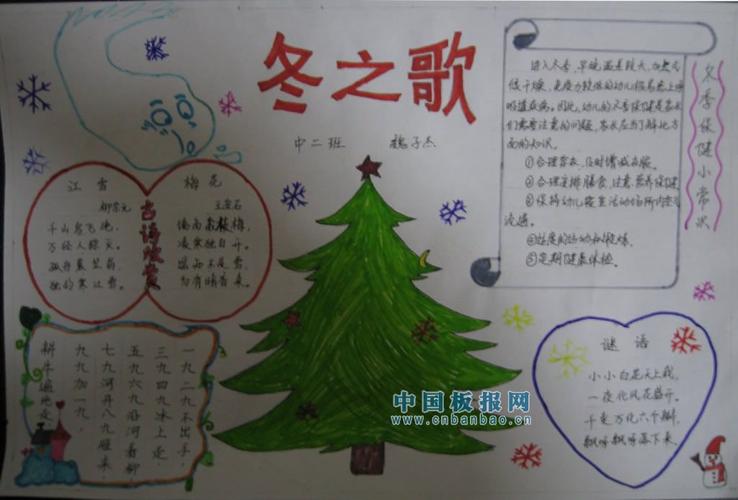 冬之歌
中二班 魏子杰
江雪
柳宗元
千山鸟飞绝,
万径人踪灭。
孤舟蓑笠翁,
独钓寒江雪。
古诗欣赏
梅花
王安石
墙角数枝梅,
凌寒独自开。
遥知不是雪,
为有暗香来。
一九二九不出手,
三九四九冰上走,
五九六九沿河看柳,
七九河开八九雁来,
九九加一九,
耕牛遍地走。
冬季保健小常识
进入冬季,早晚温差较大,
低干燥,免疫力较低的幼儿很容易患上呼
吸道疾病。因此,幼儿的冬季保健是家长
们需要注意的问题,家长应当了解地方
面的知识。
①合理穿衣,及时增减衣服。
②合理安排膳食,注意营养保健
③保持幼儿寝室活动场所内空气
流通。
④适度的运动和锻炼
⑤定期健康体检。
谜语
小小白花天上栽,
一夜北风花盛开。
千变万化六个瓣,
飘呀飘呀落下来。
中国板报网
www.cnbanbao.cn